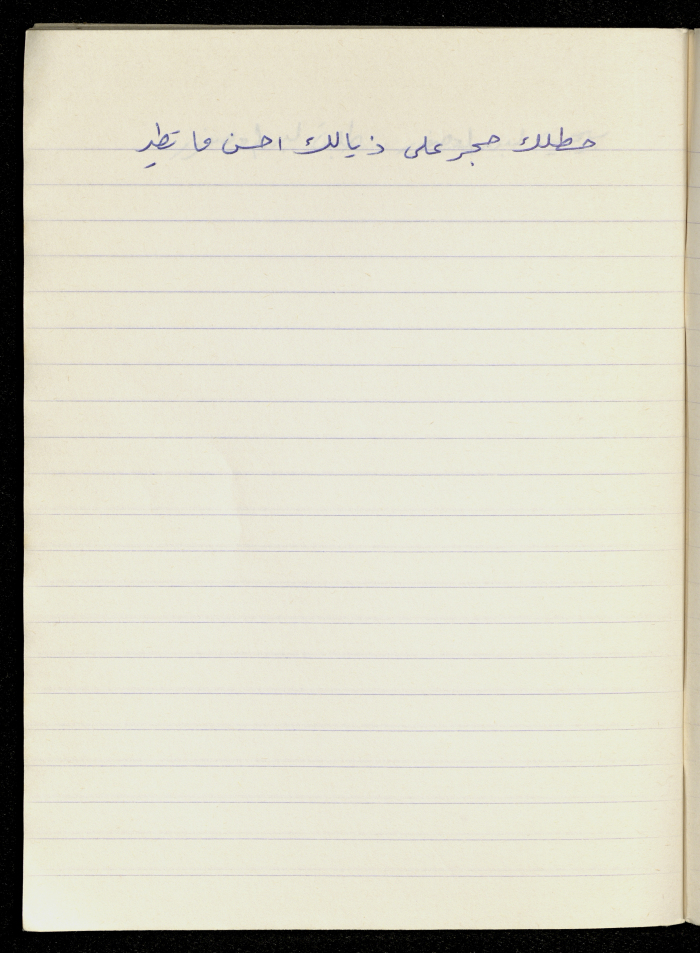 حطلك حجر على ذيالك احسن ما تطير